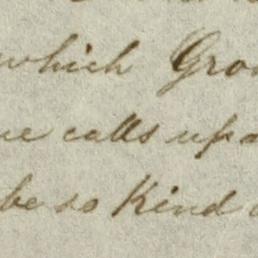 which Gro
calls up
be so Kind